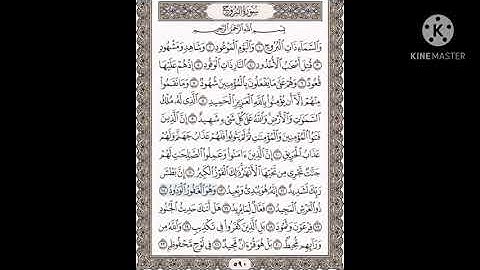 سُورَةُ البُرُوجِ
بِسْمِ اللَّهِ الرَّحْمَٰنِ الرَّحِيمِ
وَالسَّمَاءِ ذَاتِ الْبُرُوجِ ١ وَالْيَوْمِ الْمَوْعُودِ ٢ وَشَاهِدٍ وَمَشْهُودٍ
٣ قُتِلَ أَصْحَٰبُ الْأُخْدُودِ ٤ النَّارِ ذَاتِ الْوَقُودِ ٥ إِذْ هُمْ عَلَيْهَا
قُعُودٌ ٦ وَهُمْ عَلَىٰ مَا يَفْعَلُونَ بِالْمُؤْمِنِينَ شُهُودٌ ٧ وَمَا نَقَمُوا
مِنْهُمْ إِلَّا أَن يُؤْمِنُوا بِاللَّهِ الْعَزِيزِ الْحَمِيدِ ٨ الَّذِي لَهُ مُلْكُ
السَّمَٰوَٰتِ وَالْأَرْضِ وَاللَّهُ عَلَىٰ كُلِّ شَيْءٍ شَهِيدٌ ٩ إِنَّ الَّذِينَ
فَتَنُوا الْمُؤْمِنِينَ وَالْمُؤْمِنَٰتِ ثُمَّ لَمْ يَتُوبُوا فَلَهُمْ عَذَابُ جَهَنَّمَ وَلَهُمْ
عَذَابُ الْحَرِيقِ ١٠ إِنَّ الَّذِينَ ءَامَنُوا وَعَمِلُوا الصَّٰلِحَٰتِ لَهُمْ
جَنَّٰتٌ تَجْرِي مِن تَحْتِهَا الْأَنْهَٰرُ ذَٰلِكَ الْفَوْزُ الْكَبِيرُ ١١ إِنَّ بَطْشَ
رَبِّكَ لَشَدِيدٌ ١٢ إِنَّهُ هُوَ يُبْدِئُ وَيُعِيدُ ١٣ وَهُوَ الْغَفُورُ الْوَدُودُ ١٤
ذُو الْعَرْشِ الْمَجِيدُ ١٥ فَعَّالٌ لِّمَا يُرِيدُ ١٦ هَلْ أَتَىٰكَ حَدِيثُ الْجُنُودِ
١٧ فِرْعَوْنَ وَثَمُودَ ١٨ بَلِ الَّذِينَ كَفَرُوا فِي تَكْذِيبٍ ١٩ وَاللَّهُ مِن
وَرَائِهِم مُّحِيطٌ ٢٠ بَلْ هُوَ قُرْءَانٌ مَّجِيدٌ ٢١ فِي لَوْحٍ مَّحْفُوظٍ ٢٢
٥٩٠
KINEMASTER